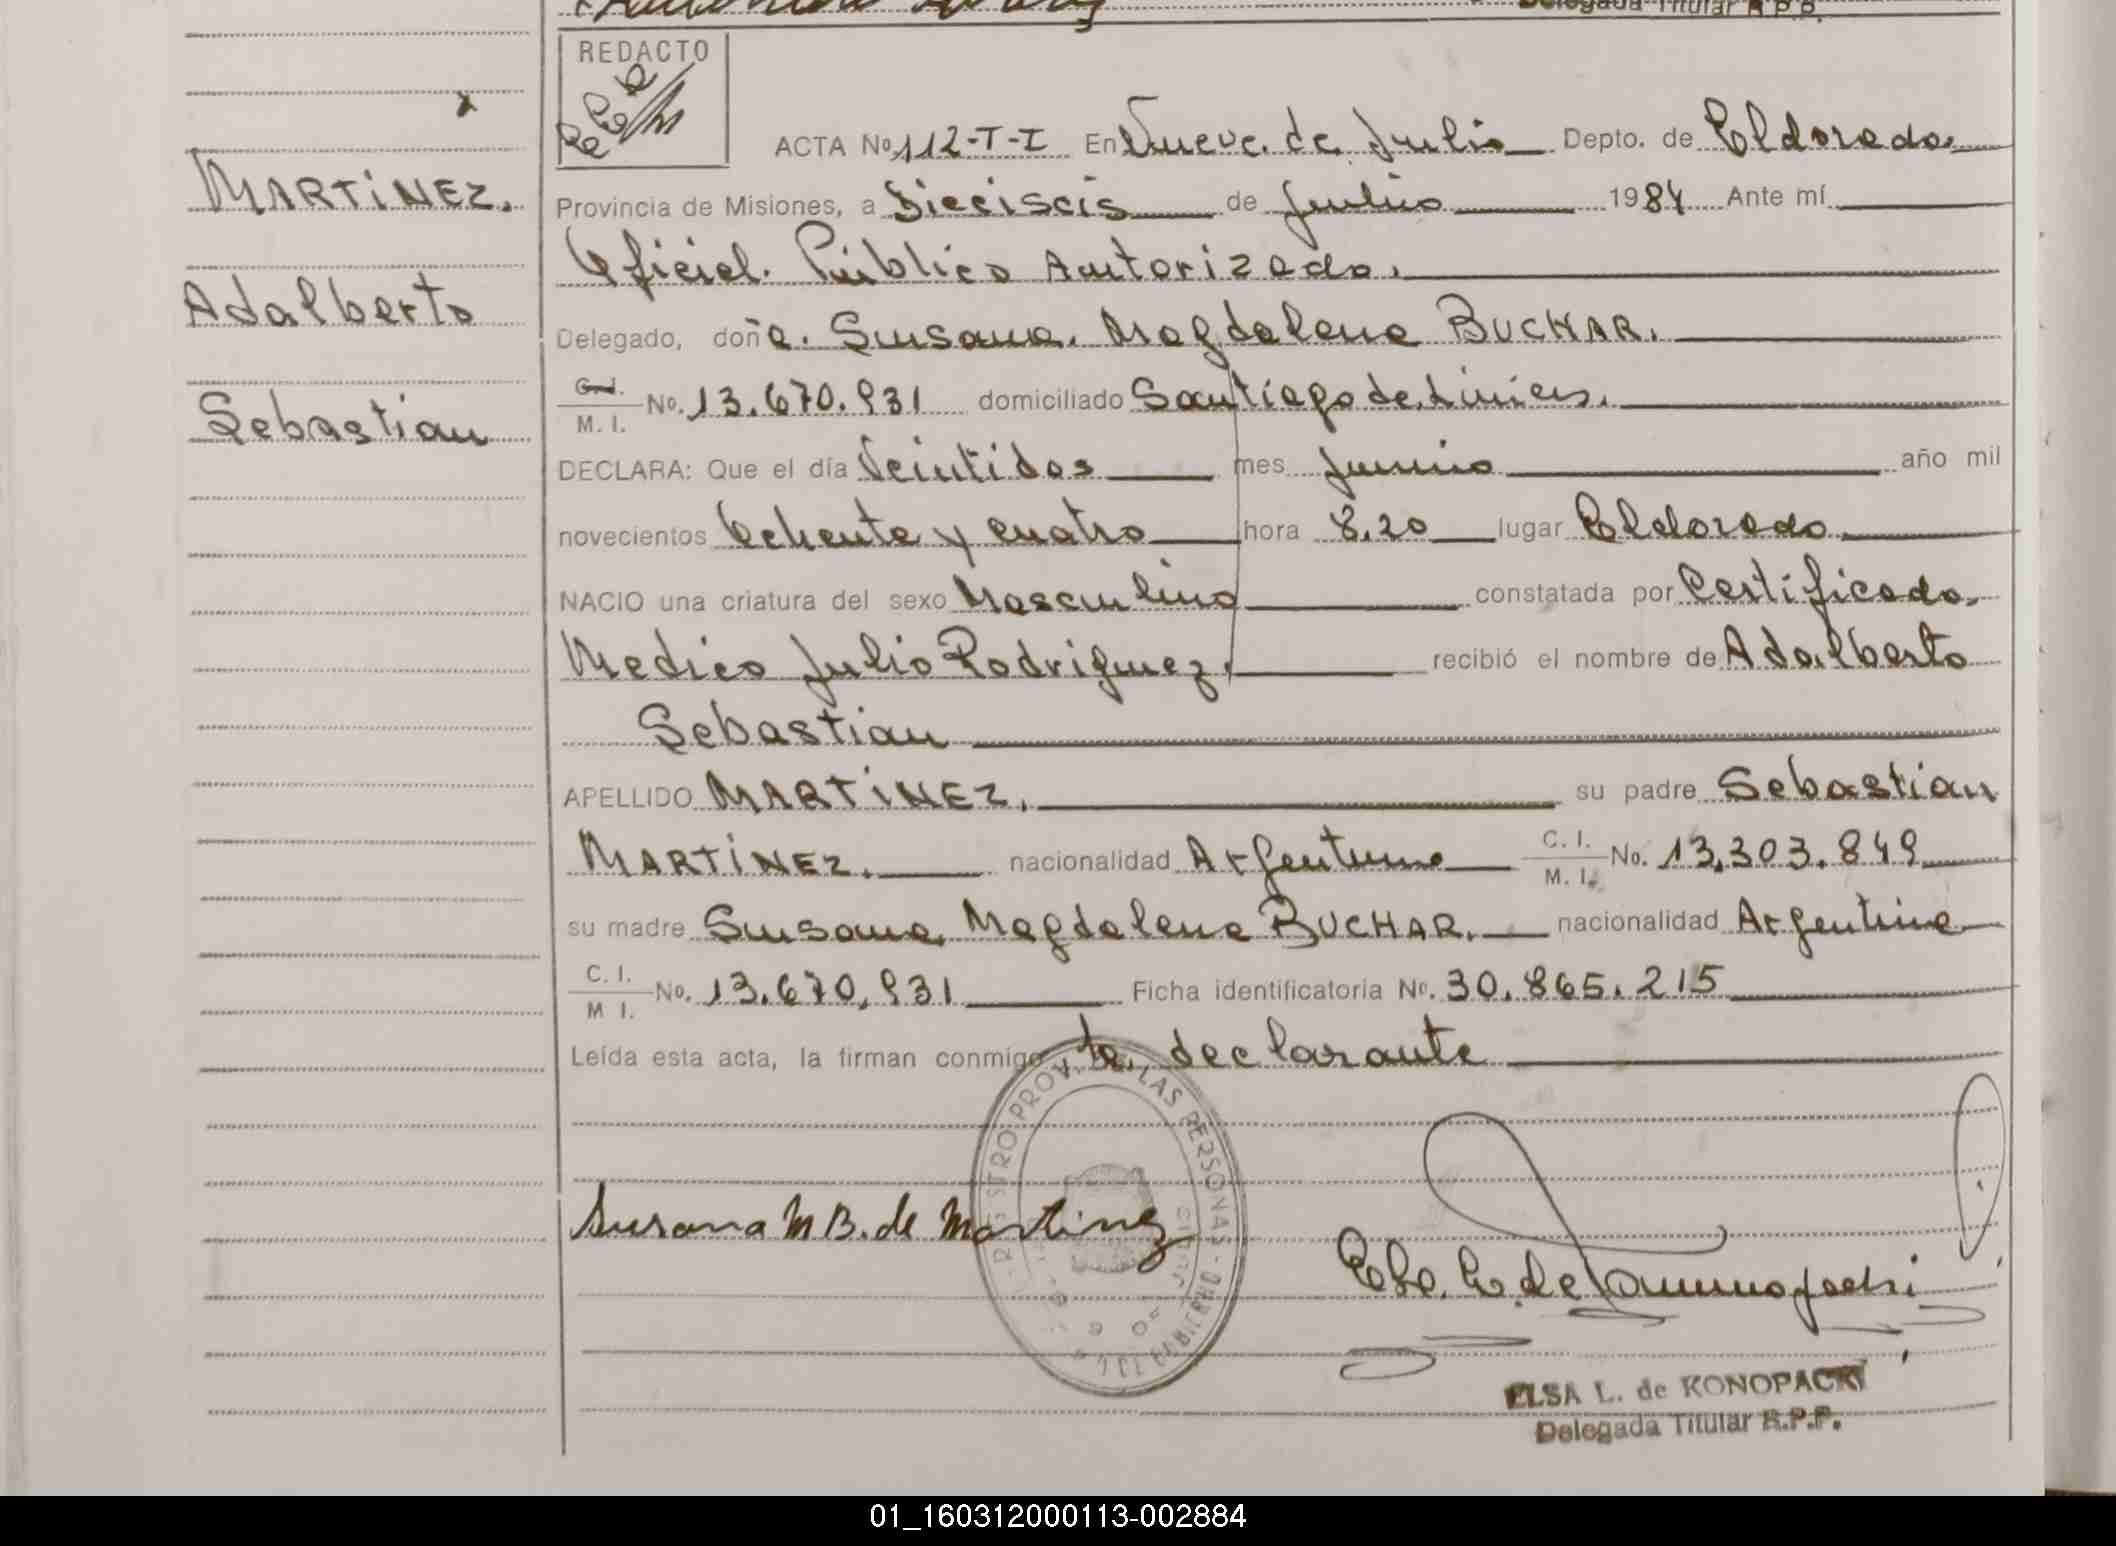 Delegada Titular R.P.P.
REDACTO
ACTA No. 112-T-I En Nueve de Julio Depto. de Eldorado
MARTINEZ.
Provincia de Misiones, a Dieciseis de Julio 1984 Ante mí
Oficial Público Autorizado.
Adalberto
Delegado, doña. Susana Magdalena BUCHAR.
Sebastian
C.I.
M. I. No. 13.670.931 domiciliado Santiago de Liniers.
DECLARA: Que el día Veintidos mes Junio año mil
novecientos Ochenta y cuatro hora 8,20 lugar Eldorado
NACIO una criatura del sexo Masculino constatada por Certificado
Medico Julio Rodriguez. recibió el nombre de Adalberto
Sebastian
APELLIDO MARTINEZ. su padre Sebastian
MARTINEZ. nacionalidad Argentino C. I. M. I. No. 13,303.849
su madre Susana Magdalena BUCHAR. nacionalidad Argentina
C. I. M I. No. 13.670,931 Ficha identificatoria No. 30.865.215
Leída esta acta, la firman conmigo la declarante
LAS PERSONAS
Susana M B. de Martinez
ELSA L. de KONOPACKI
Delegada Titular R.P.P.
01_160312000113-002884